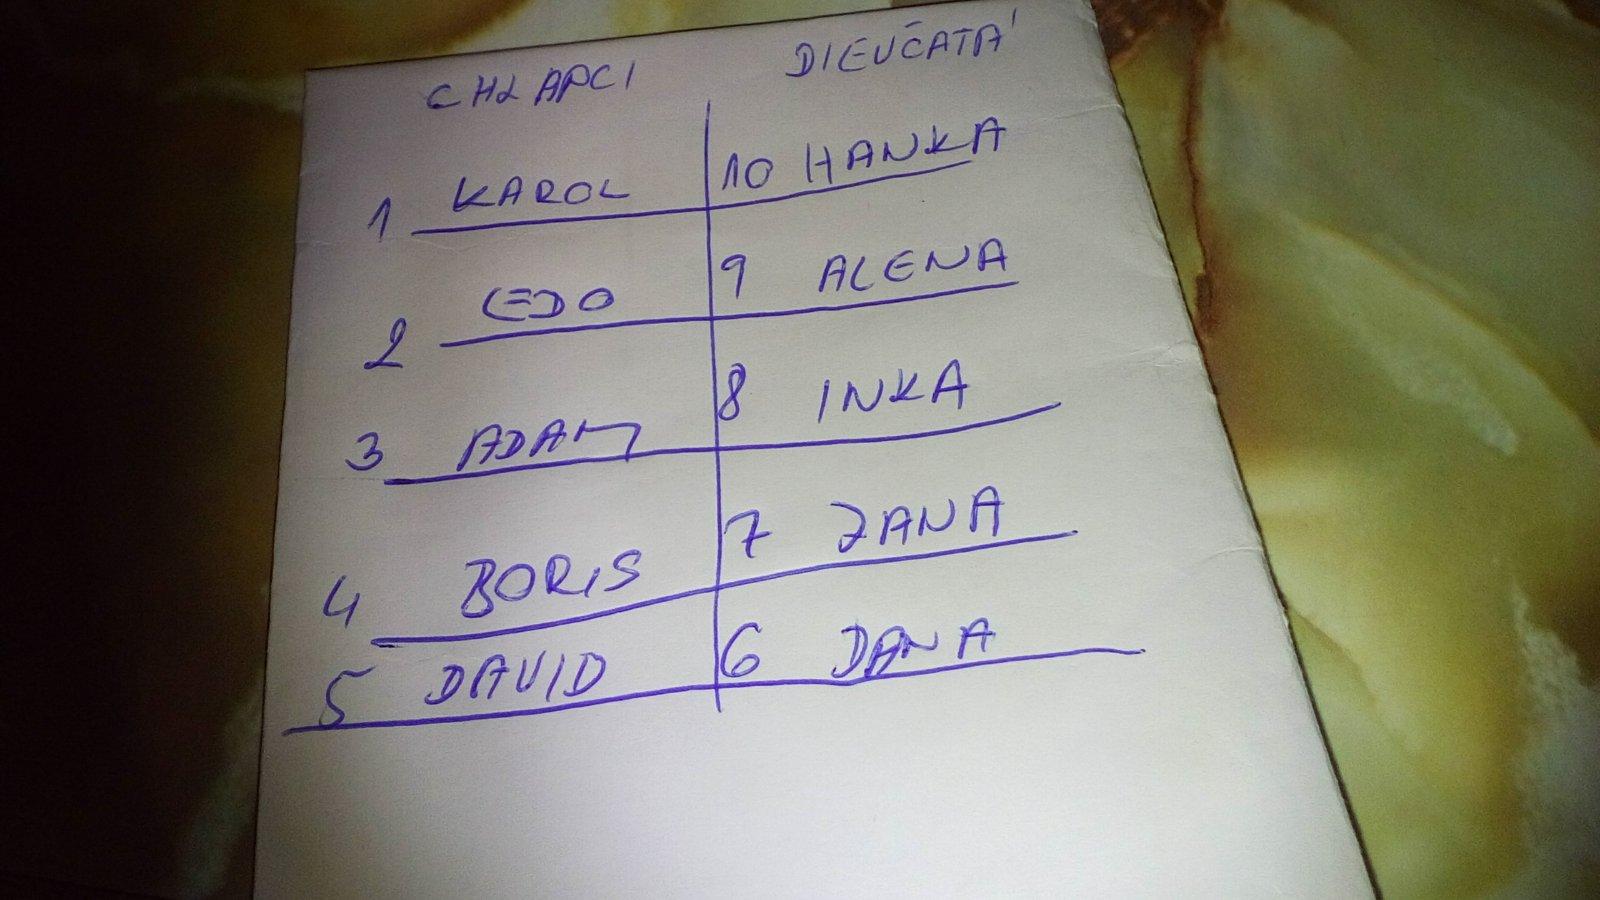 CHLAPCI DIEVČATÁ
1 KAROL 10 HANKA
2 EDO 9 ALENA
3 ADAM 8 INKA
4 BORIS 7 ZANA
5 DAVID 6 DANA